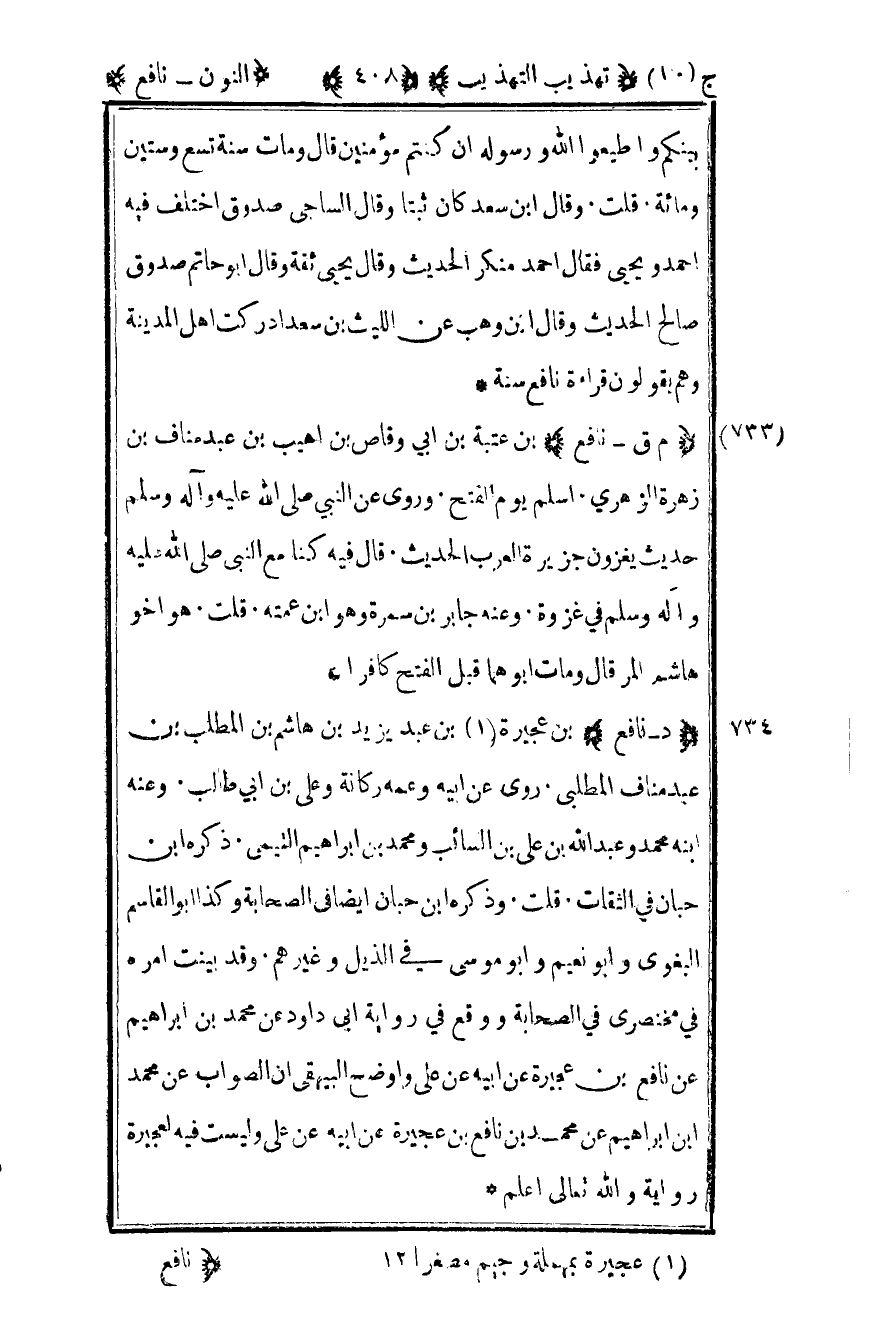 ج (١٠) ﴿ تهذيب التهذيب ﴾ ﴿ ٤٠٨ ﴾ ﴿ النون ـ نافع ﴾
بينكم واطيعوا الله ورسوله ان كنتم مؤمنين قال ومات سنة تسع وستين
ومائة · قلت · وقال ابن سعد كان ثبتا وقال الساجى صدوق اختلف فيه
احمد ويحيى فقال احمد منكر الحديث وقال يحيى ثقة وقال ابو حاتم صدوق
صالح الحديث وقال ابن وهب عن الليث بن سعد ادركت اهل المدينة
وهم يقولون قراءة نافع سنة *
(٧٣٣) ﴿ م ق ـ نافع ﴾ بن عتبة بن ابي وقاص بن اهيب بن عبد مناف بن
زهرة الزهري · اسلم يوم الفتح · وروى عن النبي صلى الله عليه وآله وسلم
حديث يغزون جزيرة العرب الحديث · قال فيه كنا مع النبى صلى الله عليه
وآله وسلم في غزوة · وعنه جابر بن سمرة وهو ابن عمته · قلت · هو اخو
هاشم المرقال ومات ابوهما قبل الفتح كافرا *
٧٣٤ ﴿ د ـ نافع ﴾ بن عجيرة (١) بن عبد يزيد بن هاشم بن المطلب بن
عبد مناف المطلبى · روى عن ابيه وعمه ركانة وعلى بن ابي طالب · وعنه
ابنه محمد وعبد الله بن على بن السائب ومحمد بن ابراهيم التيمى · ذكره ابن
حبان في الثقات · قلت · وذكره ابن حبان ايضا فى الصحابة وكذا ابو القاسم
البغوى وابو نعيم وابو موسى في الذيل وغيرهم · وقد بينت امره
في مختصرى في الصحابة ووقع في رواية ابى داود عن محمد بن ابراهيم
عن نافع بن عجيرة عن ابيه عن على واوضح البيهقى ان الصواب عن محمد
ابن ابراهيم عن محمد بن نافع بن عجيرة عن ابيه عن على وليست فيه لعجيرة
رواية والله تعالى اعلم *
(١) عجيرة بمهملة وجيم مصغرا ١٢
﴿ نافع